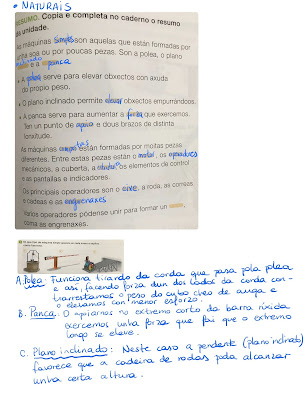 • NATURAIS
RESUMO. Copia e completa no caderno o resumo
da unidade.
máquinas simples son aquelas que están formadas por
unha soa ou por poucas pezas. Son a polea, o plano
inclinado e a panca.
• A polea serve para elevar obxectos con axuda
do propio peso.
• O plano inclinado permite elevar obxectos empurrándoos.
• A panca serve para aumentar a forza que exercemos.
Ten un punto de apoio e dous brazos de distinta
lonxitude.
As máquinas están formadas por moitas pezas
diferentes. Entre estas pezas están o motor, os operadores
mecánicos, a cuberta, a os elementos de control
e as pantallas e indicadores.
Os principais operadores son o eixe, a roda, as correas
e cadeas e as engrenaxes
Varios operadores pódense unir para formar un
como as engrenaxes.
A. Polea: Funciona tirando da corda que pasa pola polea
e así, facendo forza dun dos lados da corda con-
trarrestamos o peso do cubo cheo de auga e
o elevamos con menor esforzo.
B. Panca: O apoiarnos no extremo corto da barra ríxida
exercemos unha forza que fai que o extremo
longo se eleve.
C. Plano inclinado: Neste caso a pendente (plano inclinado)
favorece que a cadeira de rodas poda alcanzar
unha certa altura.